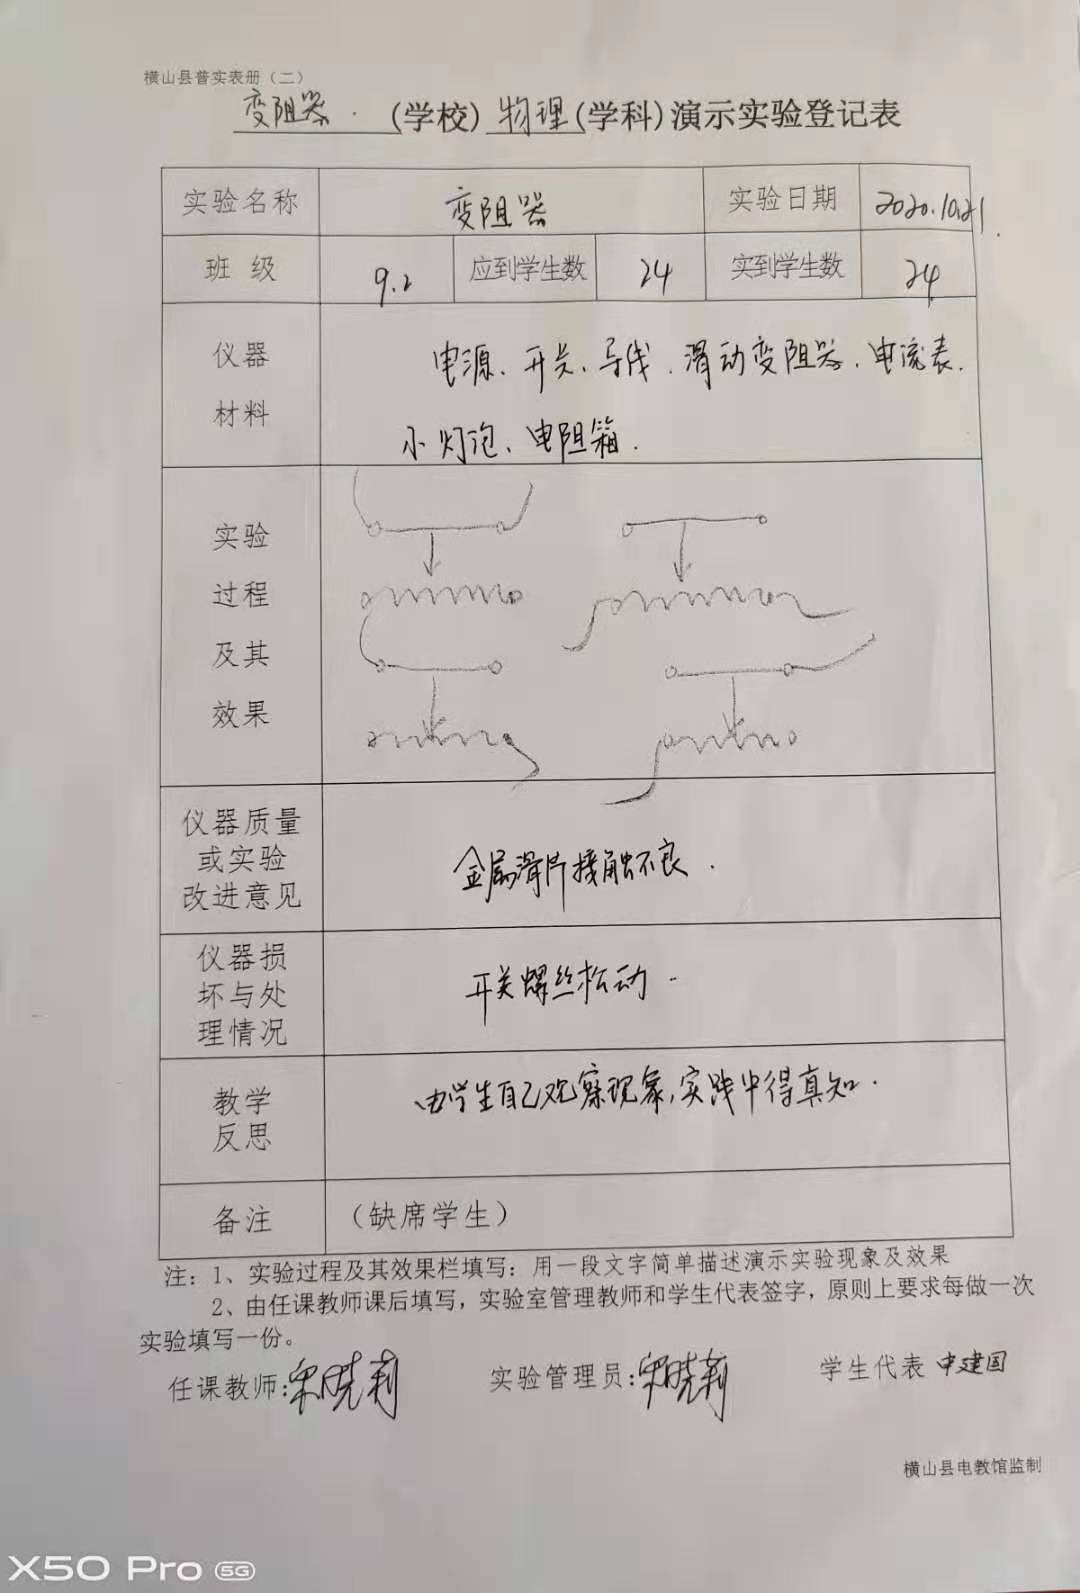 横山县普实表册（二）
变阻器.（学校）物理（学科）演示实验登记表
实验名称 变阻器 实验日期 2020.10.21.
班 级 9.2 应到学生数 24 实到学生数 24
仪器 电源、开关、导线、滑动变阻器、电流表、
材料 小灯泡、电阻箱.
实验
过程
及其
效果
仪器质量
或实验 金属滑片接触不良.
改进意见
仪器损
坏与处 开关螺丝松动.
理情况
教学 由学生自己观察现象,实践中得真知.
反思
备注 （缺席学生）
注：1、实验过程及其效果栏填写：用一段文字简单描述演示实验现象及效果
2、由任课教师课后填写，实验室管理教师和学生代表签字，原则上要求每做一次
实验填写一份。
任课教师:宋晓莉 实验管理员:宋晓莉 学生代表 申建国
横山县电教馆监制
X50 Pro 5G